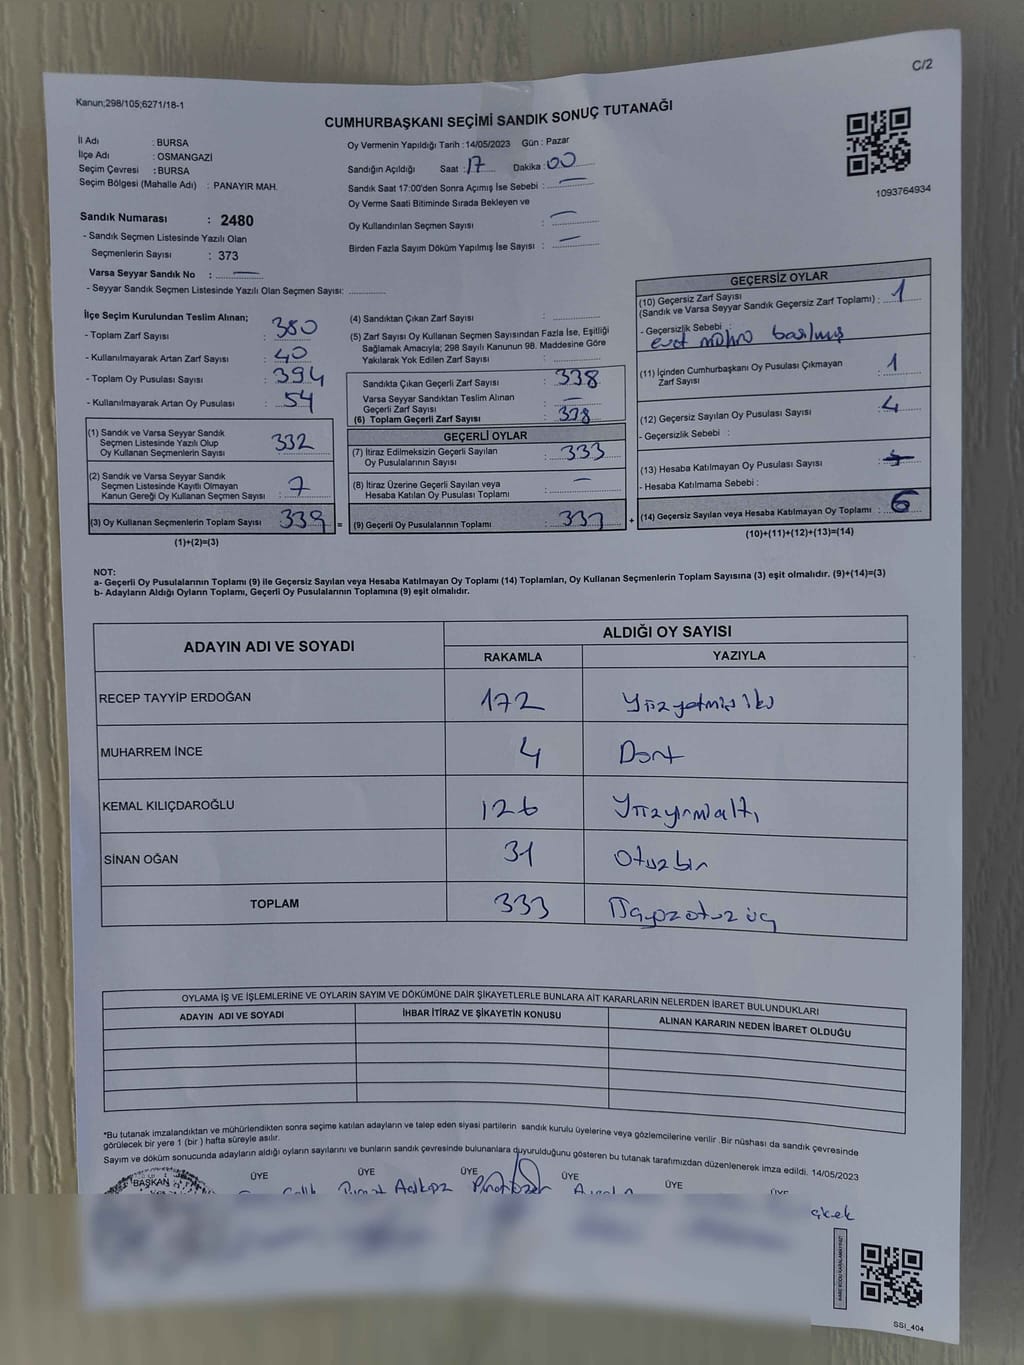 C/2
Kanun;298/105;6271/18-1
CUMHURBAŞKANI SEÇİMİ SANDIK SONUÇ TUTANAĞI
İl Adı : BURSA
İlçe Adı : OSMANGAZİ
Seçim Çevresi : BURSA
Seçim Bölgesi (Mahalle Adı) : PANAYIR MAH.
Sandık Numarası : 2480
- Sandık Seçmen Listesinde Yazılı Olan
Seçmenlerin Sayısı : 373
Varsa Seyyar Sandık No : —
- Seyyar Sandık Seçmen Listesinde Yazılı Olan Seçmen Sayısı:
Oy Vermenin Yapıldığı Tarih :14/05/2023 Gün : Pazar
Sandığın Açıldığı Saat : 17 Dakika : 00
Sandık Saat 17:00'den Sonra Açımış İse Sebebi : —
Oy Verme Saati Bitiminde Sırada Bekleyen ve
Oy Kullandırılan Seçmen Sayısı : —
Birden Fazla Sayım Döküm Yapılmış İse Sayısı : —
1093764934
İlçe Seçim Kurulundan Teslim Alınan;
- Toplam Zarf Sayısı : 380
- Kullanılmayarak Artan Zarf Sayısı : 40
- Toplam Oy Pusulası Sayısı : 394
- Kullanılmayarak Artan Oy Pusulası : 54
(1) Sandık ve Varsa Seyyar Sandık
Seçmen Listesinde Yazılı Olup
Oy Kullanan Seçmenlerin Sayısı : 332
(2) Sandık ve Varsa Seyyar Sandık
Seçmen Listesinde Kayıtlı Olmayan
Kanun Gereği Oy Kullanan Seçmen Sayısı : 7
(3) Oy Kullanan Seçmenlerin Toplam Sayısı : 339 =
(1)+(2)=(3)
(4) Sandıktan Çıkan Zarf Sayısı :
(5) Zarf Sayısı Oy Kullanan Seçmen Sayısından Fazla İse, Eşitliği
Sağlamak Amacıyla; 298 Sayılı Kanunun 98. Maddesine Göre
Yakılarak Yok Edilen Zarf Sayısı :
Sandıkta Çıkan Geçerli Zarf Sayısı : 338
Varsa Seyyar Sandıktan Teslim Alınan
Geçerli Zarf Sayısı : —
(6) Toplam Geçerli Zarf Sayısı : 338
GEÇERLİ OYLAR
(7) İtiraz Edilmeksizin Geçerli Sayılan
Oy Pusulalarının Sayısı : 333
(8) İtiraz Üzerine Geçerli Sayılan veya
Hesaba Katılan Oy Pusulası Toplamı : —
(9) Geçerli Oy Pusulalarının Toplamı : 333 +
GEÇERSİZ OYLAR
(10) Geçersiz Zarf Sayısı
(Sandık ve Varsa Seyyar Sandık Geçersiz Zarf Toplamı) : 1
- Geçersizlik Sebebi :
evet mührü basılmış
(11) İçinden Cumhurbaşkanı Oy Pusulası Çıkmayan
Zarf Sayısı : 1
(12) Geçersiz Sayılan Oy Pusulası Sayısı : 4
- Geçersizlik Sebebi :
(13) Hesaba Katılmayan Oy Pusulası Sayısı :
- Hesaba Katılmama Sebebi :
(14) Geçersiz Sayılan veya Hesaba Katılmayan Oy Toplamı : 6
(10)+(11)+(12)+(13)=(14)
NOT:
a- Geçerli Oy Pusulalarının Toplamı (9) ile Geçersiz Sayılan veya Hesaba Katılmayan Oy Toplamı (14) Toplamları, Oy Kullanan Seçmenlerin Toplam Sayısına (3) eşit olmalıdır. (9)+(14)=(3)
b- Adayların Aldığı Oyların Toplamı, Geçerli Oy Pusulalarının Toplamına (9) eşit olmalıdır.
ADAYIN ADI VE SOYADI
ALDIĞI OY SAYISI
RAKAMLA YAZIYLA
RECEP TAYYİP ERDOĞAN 172 Yüzyetmişiki
MUHARREM İNCE 4 Dört
KEMAL KILIÇDAROĞLU 126 Yüzyirmialtı
SİNAN OĞAN 31 Otuzbir
TOPLAM 333 Üçyüzotuzüç
OYLAMA İŞ VE İŞLEMLERİNE VE OYLARIN SAYIM VE DÖKÜMÜNE DAİR ŞİKAYETLERLE BUNLARA AİT KARARLARIN NELERDEN İBARET BULUNDUKLARI
ADAYIN ADI VE SOYADI İHBAR İTİRAZ VE ŞİKAYETİN KONUSU ALINAN KARARIN NEDEN İBARET OLDUĞU
*Bu tutanak imzalandıktan ve mühürlendikten sonra seçime katılan adayların ve talep eden siyasi partilerin sandık kurulu üyelerine veya gözlemcilerine verilir .Bir nüshası da sandık çevresinde
görülecek bir yere 1 (bir ) hafta süreyle asılır.
Sayım ve döküm sonucunda adayların aldığı oyların sayılarını ve bunların sandık çevresinde bulunanlara duyurulduğunu gösteren bu tutanak tarafımızdan düzenlenerek imza edildi. 14/05/2023
BAŞKAN ÜYE ÜYE ÜYE ÜYE ÜYE ÜYE
SSİ_404